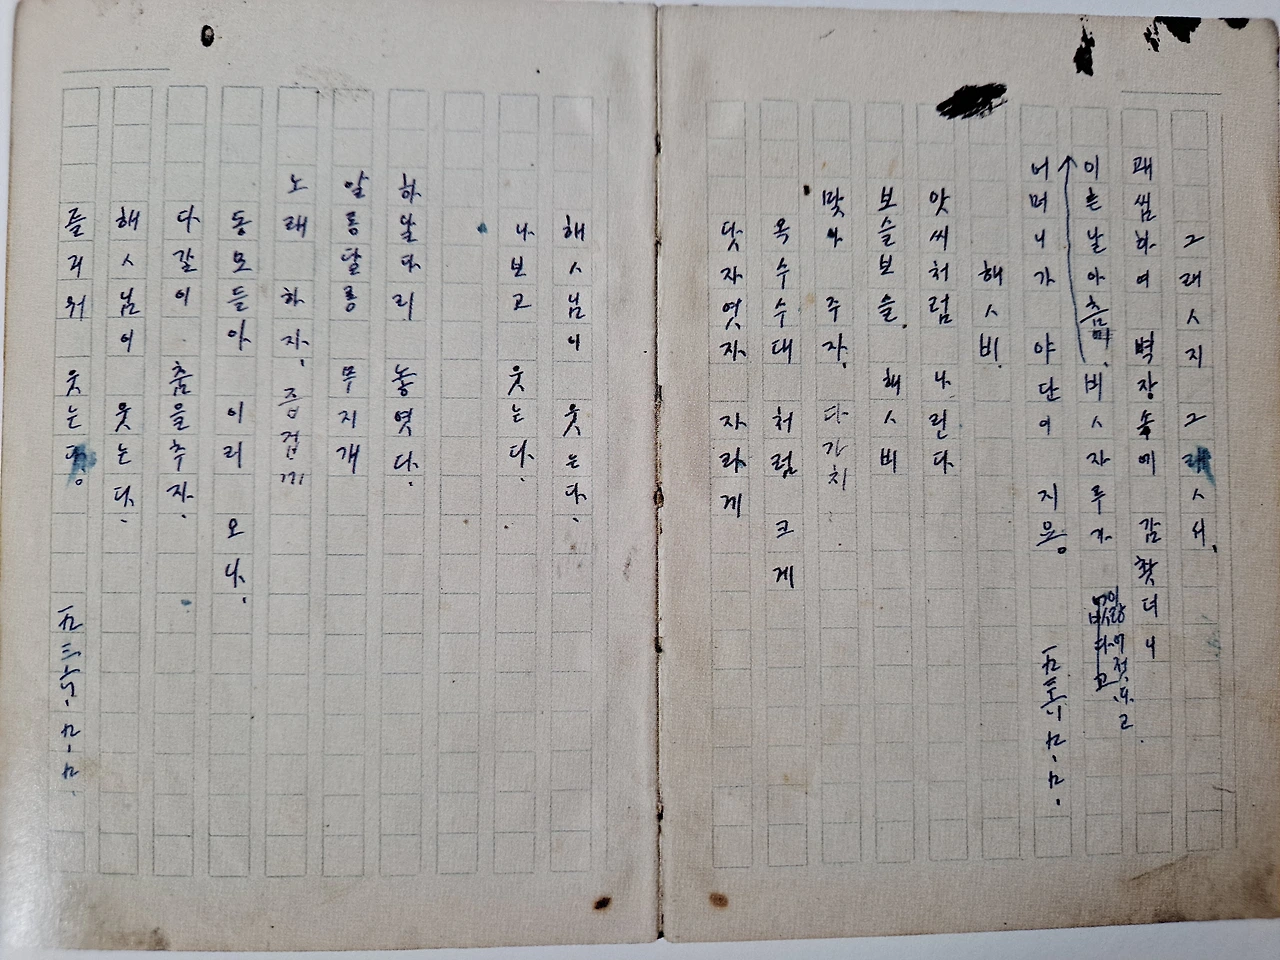 그래ㅅ지 그래ㅅ서.
괘씸하여 벽장속에 감췃더니
이튼날아츰 비ㅅ자루가
어머니가 야단이 지요.
一九三六、九、九.
해ㅅ비
앗씨처럼 나린다
보슬보슬 해ㅅ비
맞아 주자. 다가치
옥수수대 처럼 크게
닷자엿자 자라게
해ㅅ님이 웃는다.
나보고 웃는다.
하날다리 놓엿다.
알롱달롱 무지개
노래 하자. 즑겁게
동모들아 이리 오나.
다갈이 춤을추자.
해ㅅ님이 웃는다.
즐거워 웃는다.
一九三六、九、九.